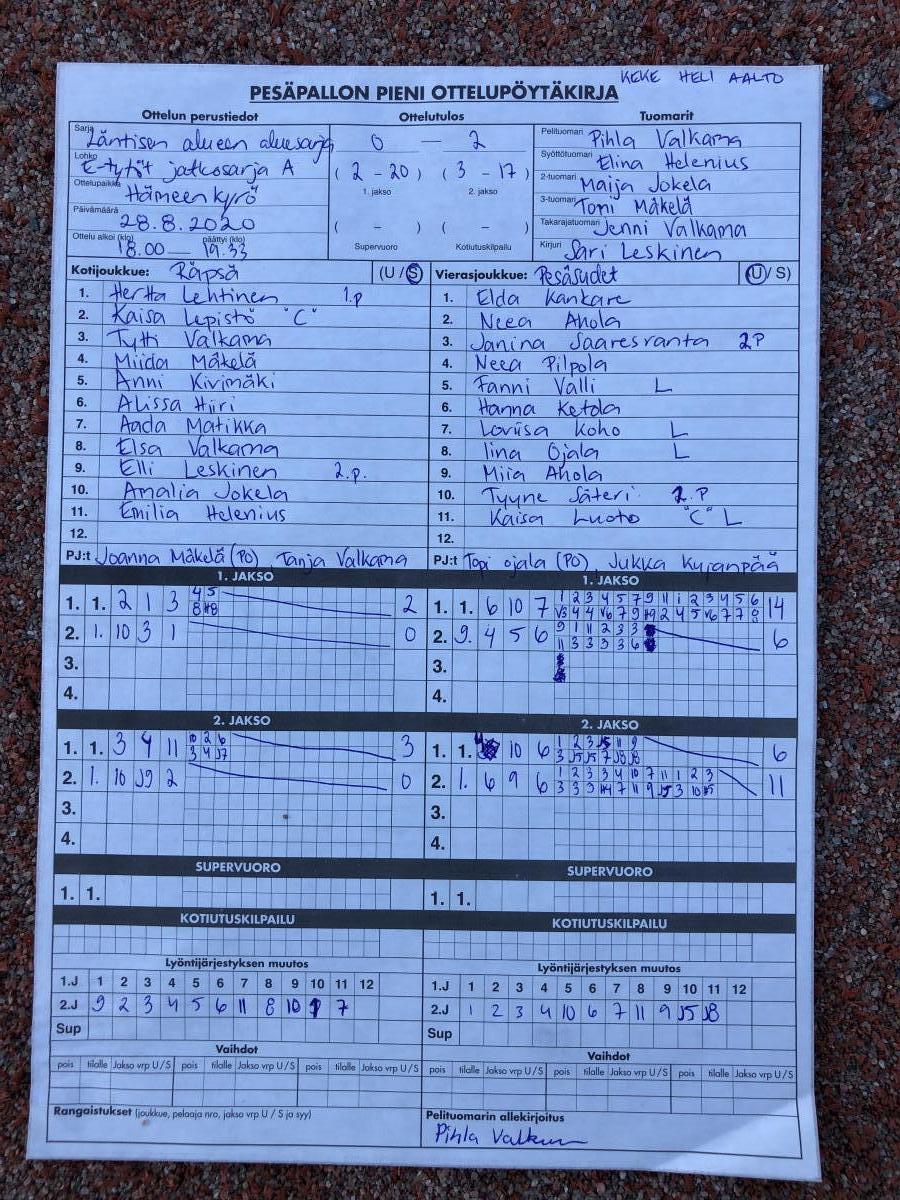 KEKE HELI AALTO
PESÄPALLON PIENI OTTELUPÖYTÄKIRJA
Ottelun perustiedot Ottelutulos Tuomarit
Sarja Läntisen alueen aluesarja 0 — 2 Pelituomari Pihla Valkama
Lohko E-tytöt jatkosarja A (2 - 20) (3 - 17) Syöttötuomari Elina Helenius
Ottelupaikka Hämeenkyrö 1. jakso 2. jakso 2-tuomari Maija Jokela
Päivämäärä 28.8.2020 3-tuomari Toni Mäkelä
( - ) ( - ) Takarajatuomari Jenni Valkama
Ottelu alkoi (klo) 18.00 päättyi (klo) 19.33 Supervuoro Kotiutuskilpailu Kirjuri Sari Leskinen
Kotijoukkue: Räpsä (U / S) Vierasjoukkue: Pesäsudet (U / S)
1. Hertta Lehtinen 1.p 1. Elda Kankare
2. Kaisa Lepistö "C" 2. Neea Ahola
3. Tytti Valkama 3. Janina Saaresranta 2P
4. Miida Mäkelä 4. Neea Pilpola
5. Anni Kivimäki 5. Fanni Valli L
6. Alissa Hiiri 6. Hanna Ketola
7. Aada Matikka 7. Loviisa Koho L
8. Elsa Valkama 8. Iina Ojala L
9. Elli Leskinen 2.p. 9. Miia Ahola
10. Amalia Jokela 10. Tyyne Säteri 1.P
11. Emilia Helenius 11. Kaisa Luoto "C" L
12. 12.
PJ:t Joanna Mäkelä (PO), Tanja Valkama PJ:t Topi Ojala (PO), Jukka Kujanpää
1. JAKSO 1. JAKSO
1. 1. 2 1 3 4 5 2 1. 1. 6 10 7 1 2 3 4 5 7 9 11 1 2 3 4 5 6 14
2. 1. 10 3 1 0 2. 9. 4 5 6 9 1 11 2 3 3 6
11 3 3 3 3 6
3. 3.
4. 4.
2. JAKSO 2. JAKSO
1. 1. 3 4 11 10 2 6 3 1. 1. 10 6 1 2 3 J5 11 9 6
3 4 J7 3 J5 J5 7 J8 J8
2. 1. 10 J9 2 0 2. 1. 6 9 6 1 2 3 3 4 10 7 11 1 2 3 11
3. 3.
4. 4.
SUPERVUORO SUPERVUORO
1. 1. 1. 1.
KOTIUTUSKILPAILU KOTIUTUSKILPAILU
Lyöntijärjestyksen muutos Lyöntijärjestyksen muutos
1.J 1 2 3 4 5 6 7 8 9 10 11 12 1.J 1 2 3 4 5 6 7 8 9 10 11 12
2.J 9 2 3 4 5 6 11 8 10 1 7 2.J 1 2 3 4 10 6 7 11 9 J5 J8
Sup Sup
Vaihdot Vaihdot
pois tilalle Jakso vrp U / S pois tilalle Jakso vrp U / S pois tilalle Jakso vrp U / S pois tilalle Jakso vrp U / S pois tilalle Jakso vrp U / S pois tilalle Jakso vrp U / S
Rangaistukset (joukkue, pelaaja nro, jakso vrp U / S ja syy) Pelituomarin allekirjoitus
Pihla Valkama